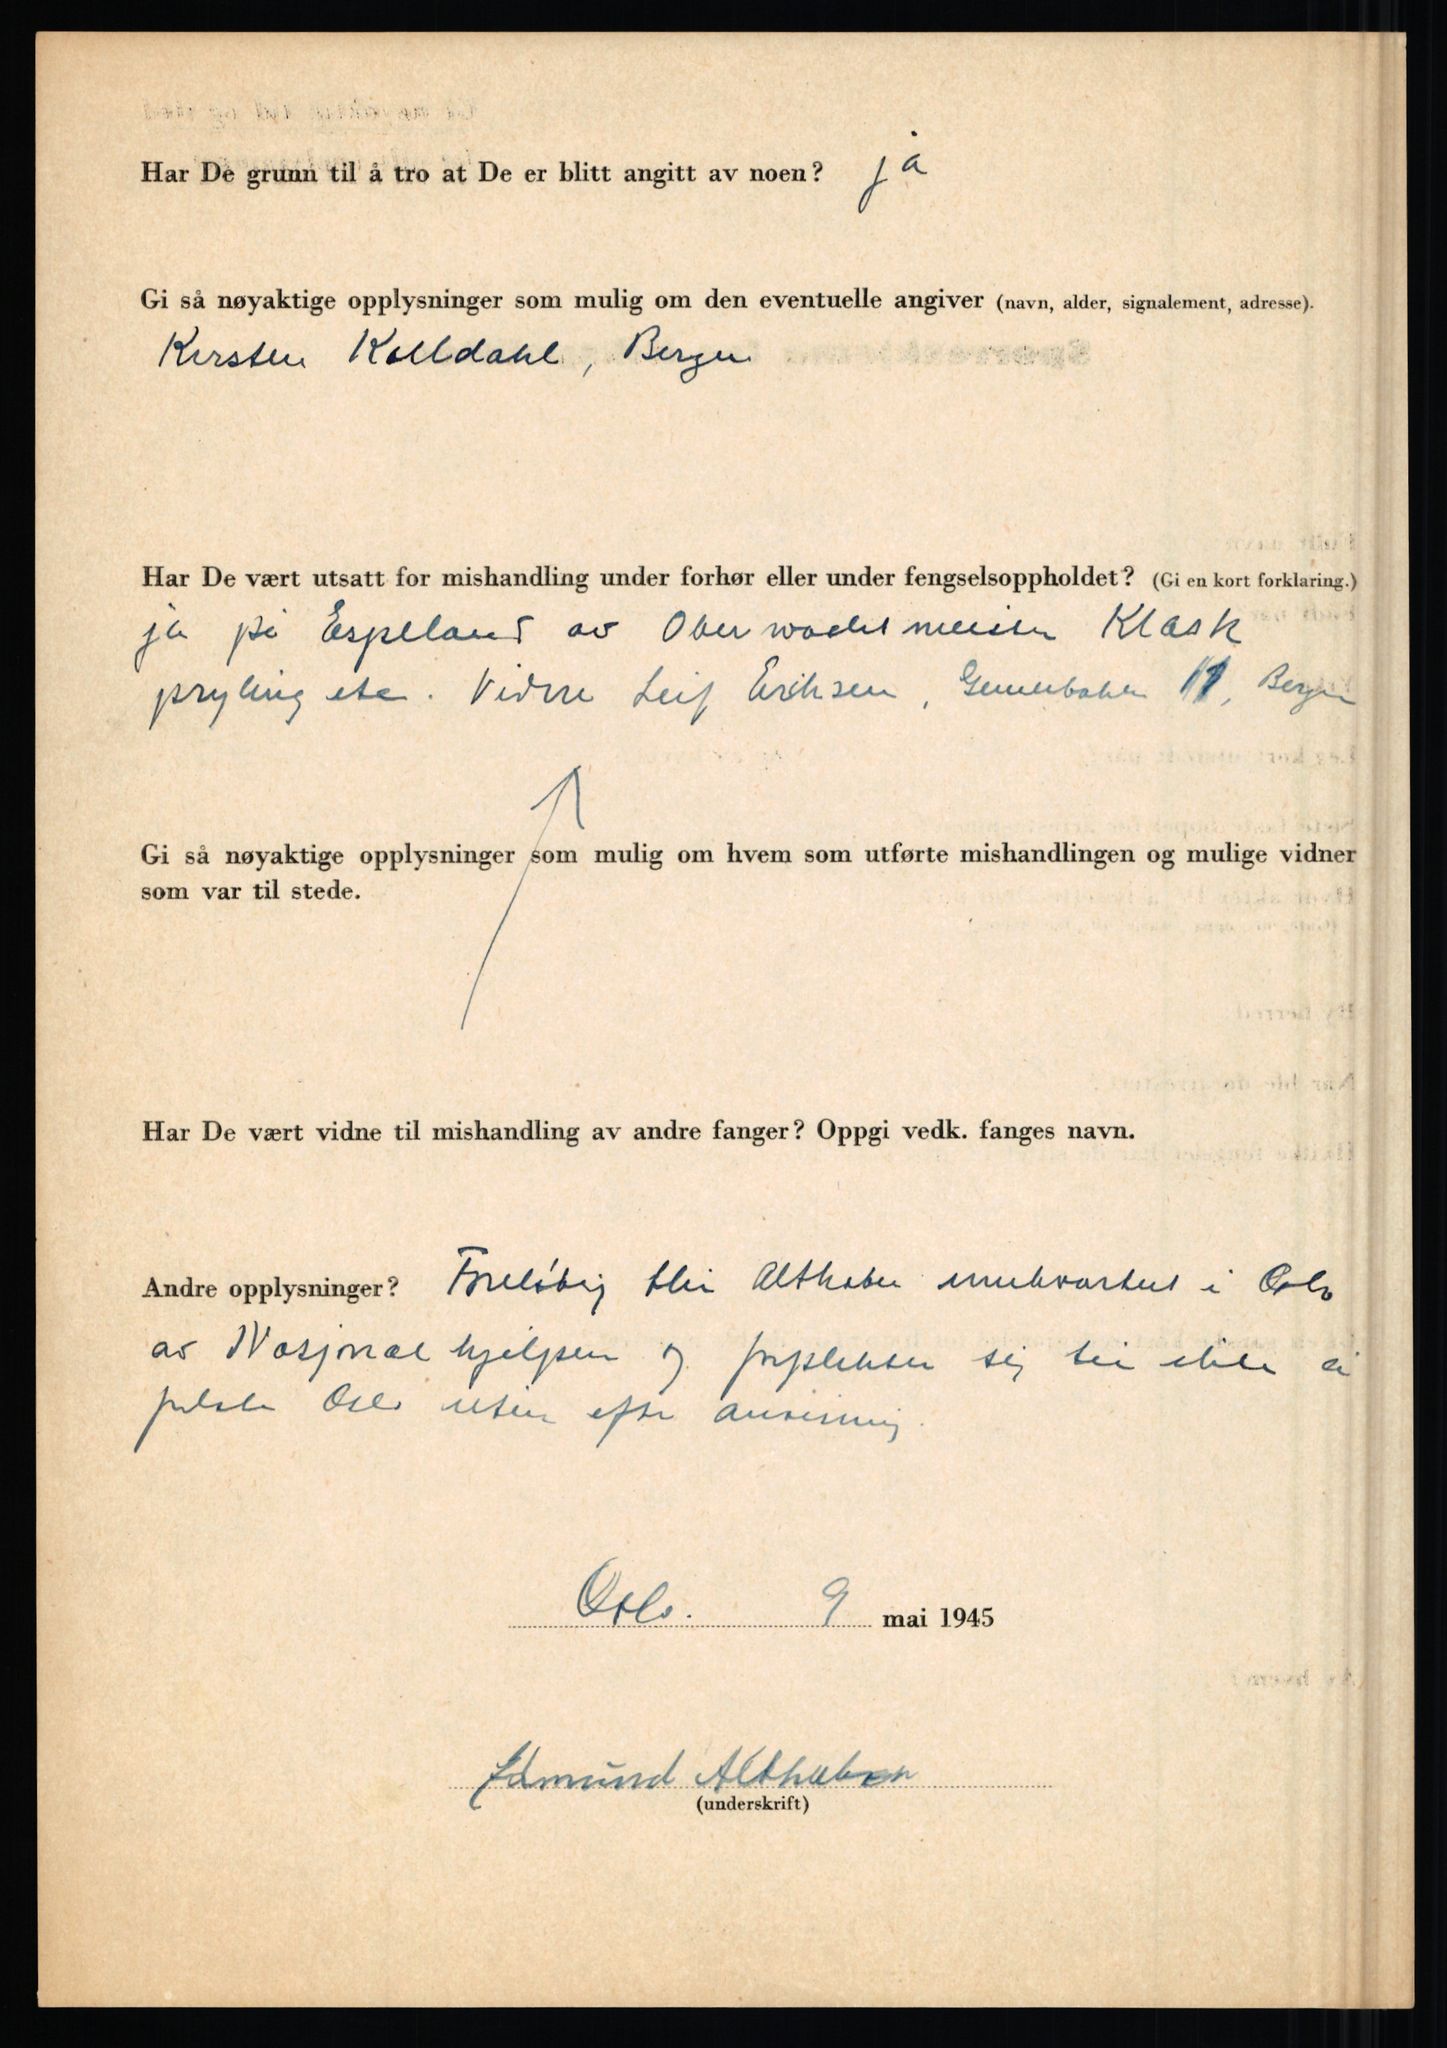 Har De grunn til å tro at De er blitt angitt av noen? ja
Gi så nøyaktige opplysninger som mulig om den eventuelle angiver (navn, alder, signalement, adresse).
Kersten Kolldahl, Bergen
Har De vært utsatt for mishandling under forhør eller under fengselsoppholdet? (Gi en kort forklaring.)
ja på Espeland av Oberwachtmeister Klask
pryling etc. Vidne Leif Erichsen, 11, Bergen
Gi så nøyaktige opplysninger som mulig om hvem som utførte mishandlingen og mulige vidner
som var til stede.
Har De vært vidne til mishandling av andre fanger? Oppgi vedk. fanges navn.
Andre opplysninger? Foreløbig blir Althaber innkvartert i Oslo
av Nasjonalhjelpen og forplikter sig til ikke å
forlate Oslo uten efter anvisning.
Oslo. 9 mai 1945
Edmund Althaber
(underskrift)